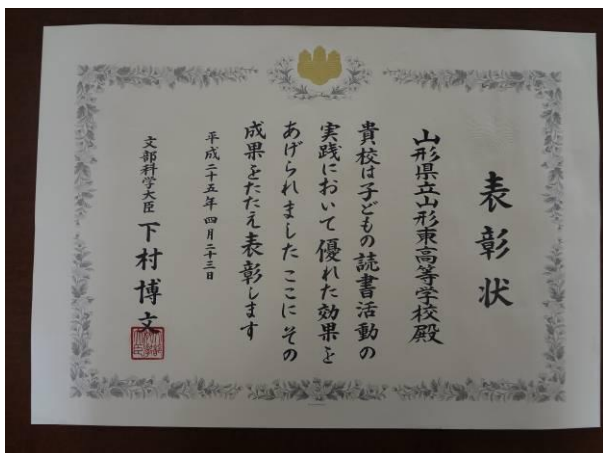 表彰状
山形県立山形東高等学校殿
貴校は子どもの読書活動の
実践において優れた効果を
あげられました ここに その
成果をたたえ表彰します
平成二十五年四月二十三日
文部科学大臣 下村博文